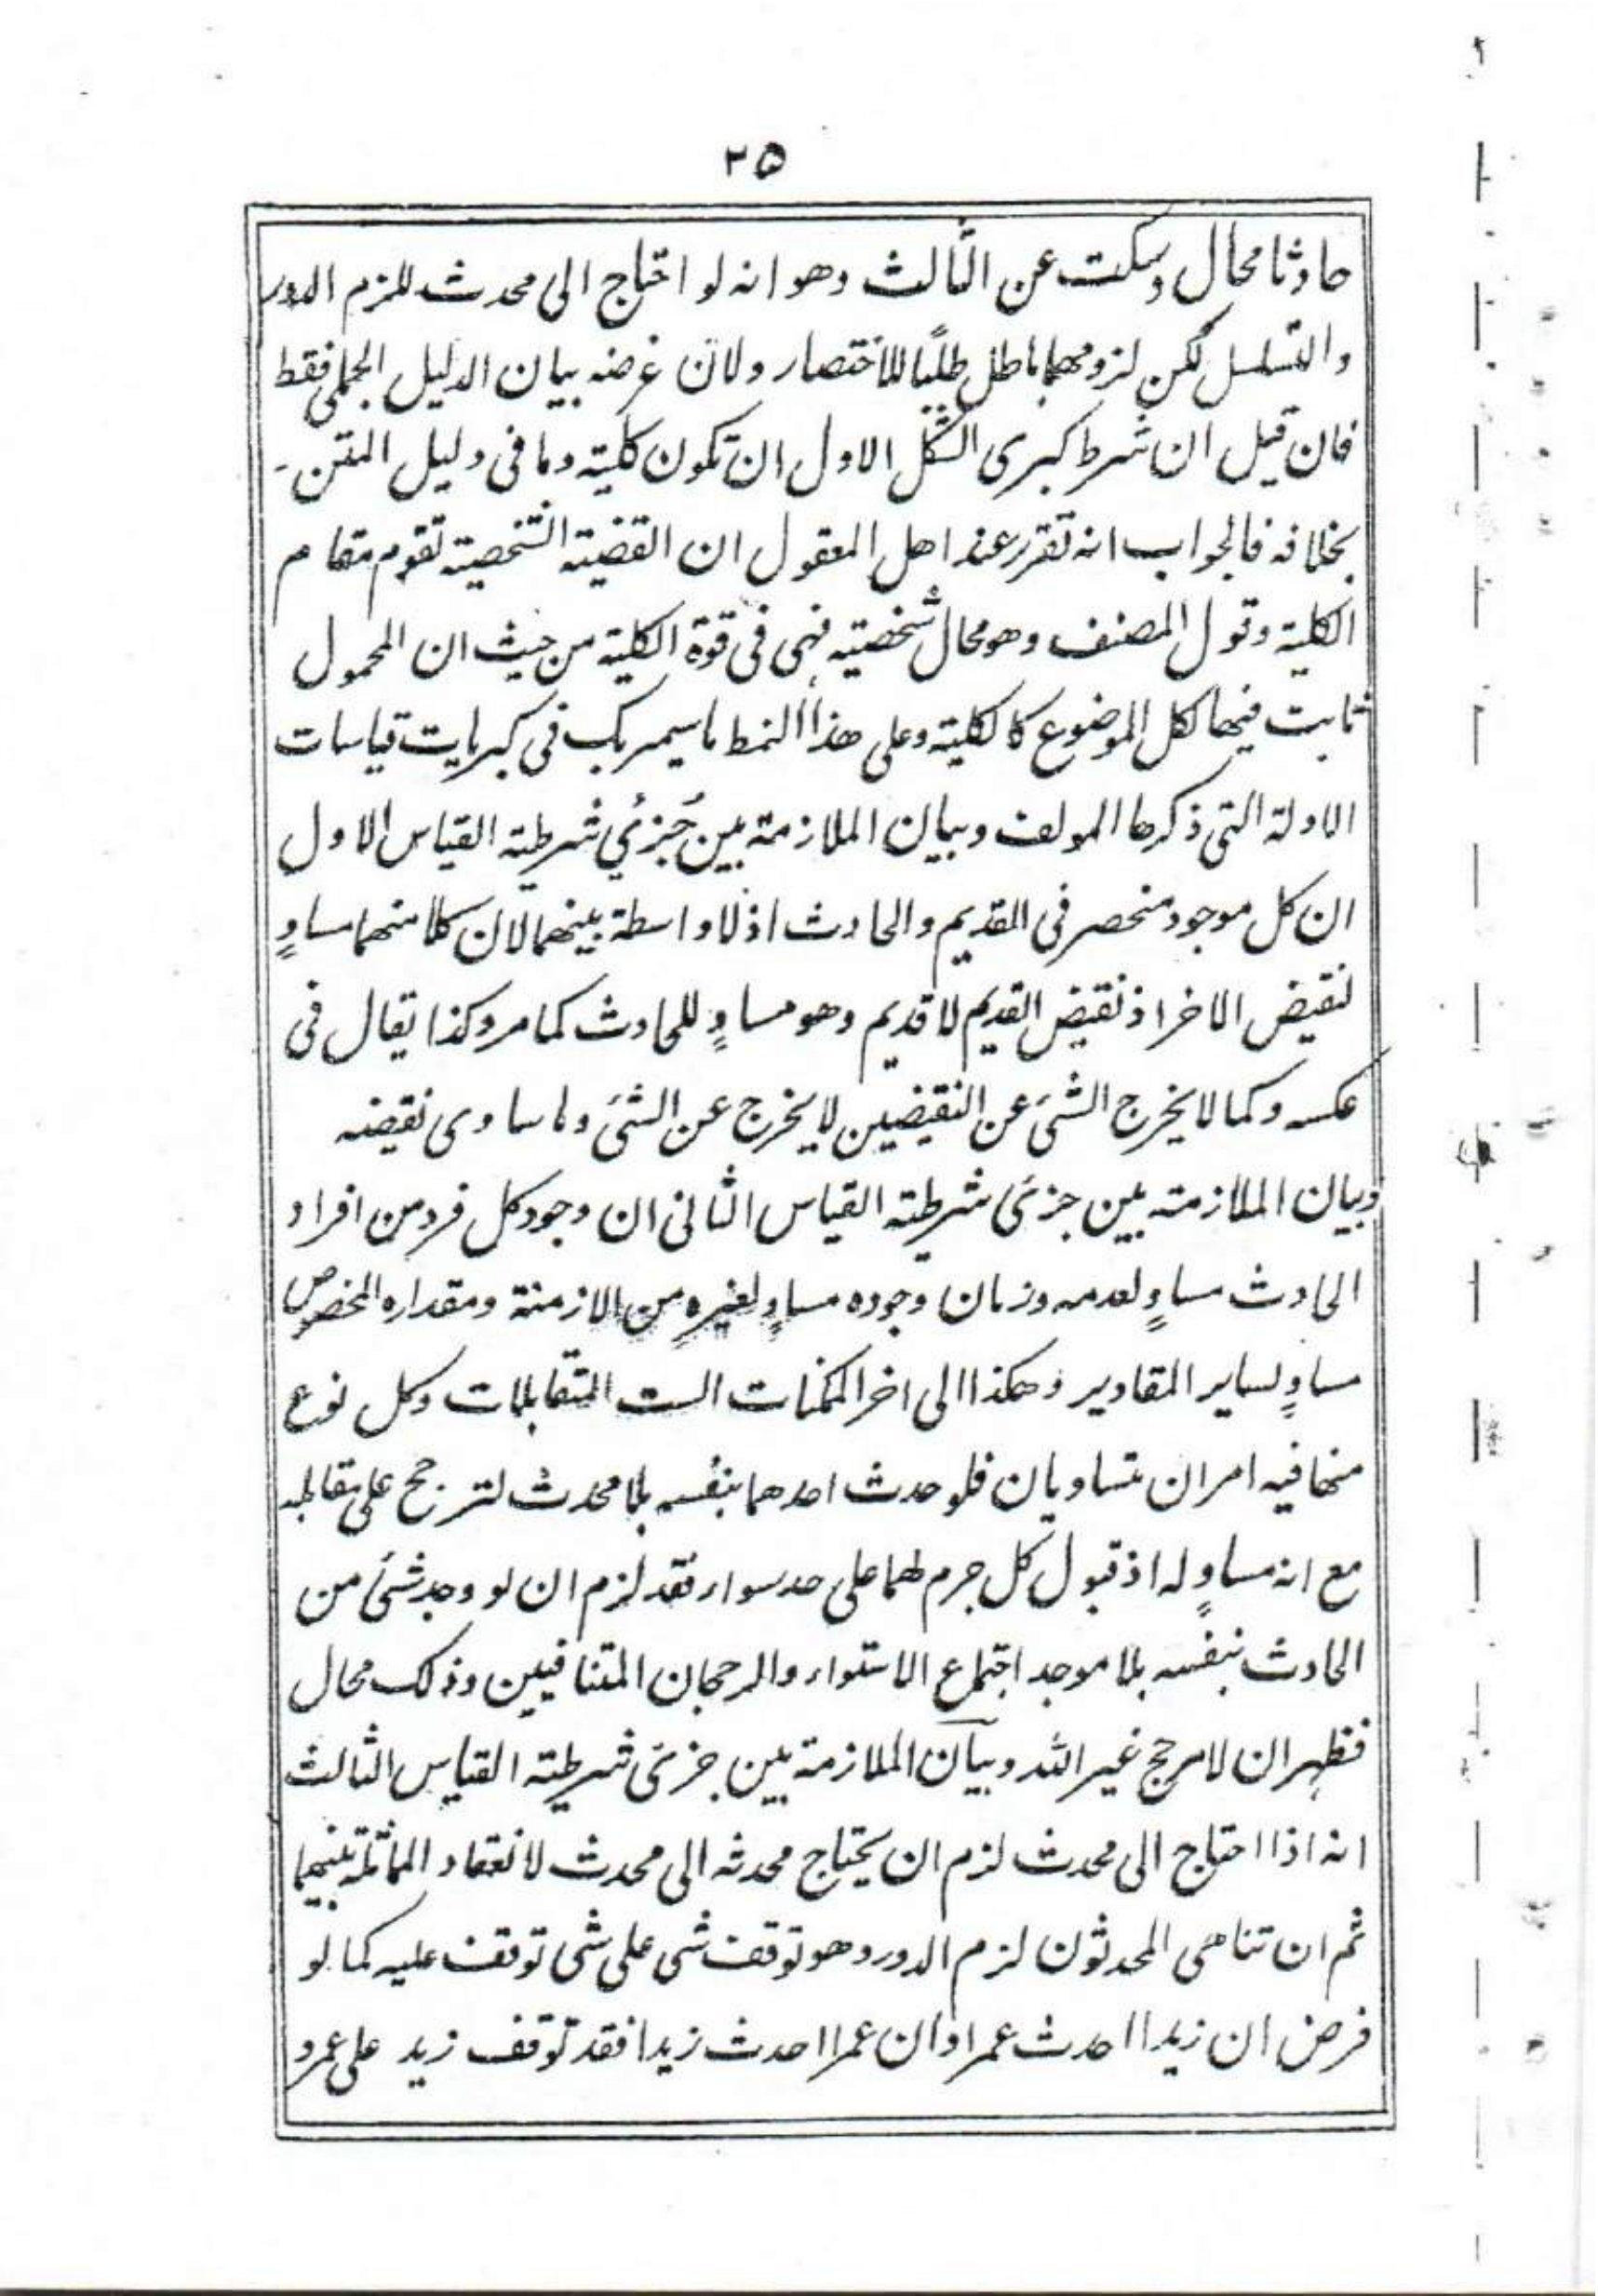 ٢٥
حادثا محال وسكت عن الثالث وهو انه لو احتاج الى محدث للزم الدور
والتسلسل لكن لزومهما باطل طلبًا للاختصار ولان غرضه بيان الدليل الجملى فقط
فان قيل ان شرط كبرى الشكل الاول ان تكون كلية وما فى دليل المتن
بخلافه فالجواب انه تقرر عند اهل المعقول ان القضية الشخصية تقوم مقام
الكلية وقول المصنف وهو محال شخصية فهى فى قوة الكلية من حيث ان المحمول
ثابت فيها لكل الموضوع كالكلية وعلى هذا النمط ما سيمر بك فى كبريات قياسات
الادلة التى ذكرها المولف وبيان الملازمة بين جُزئي شرطية القياس الاول
ان كل موجود منحصر فى القديم والحادث اذ لا واسطة بينهما لان كلا منهما مساوٍ
لنقيض الاخر اذ نقيض القديم لا قديم وهو مساوٍ للحادث كما مر وكذا يقال فى
عكسه وكما لا يخرج الشئ عن النقيضين لا يخرج عن الشئ وما ساوى نقيضه
وبيان الملازمة بين جزئ شرطية القياس الثانى ان وجود كل فرد من افراد
الحادث مساوٍ لعدمه وزمان وجوده مساوٍ لغيره من الازمنة ومقداره المخصوص
مساوٍ لساير المقادير وهكذا الى اخر الممكنات الست المتقابلات وكل نوع
منها فيه امران متساويان فلو حدث احدهما بنفسه بلا محدث لترجح على مقابله
مع انه مساوٍ له اذ قبول كل جرم لهما على حد سواء فقد لزم ان لو وجد شئ من
الحادث بنفسه بلا موجد اجتماع الاستواء والرجحان المتنافيين وذلك محال
فظهر ان لا مرجح غير الله وبيان الملازمة بين جزئ شرطية القياس الثالث
انه اذا احتاج الى محدث لزم ان يحتاج محدثه الى محدث لانعقاد المماثلة بينهما
ثم ان تناهى المحدثون لزم الدور وهو توقف شى على شى توقف عليه كما لو
فرض ان زيدا احدث عمرا وان عمرا احدث زيدا فقد توقف زيد على عمرو